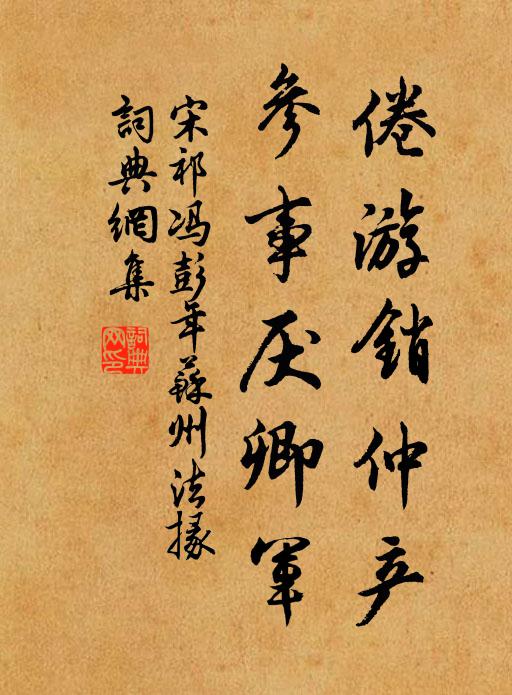 倦游銷仲产
參事厌卿軍
宋祁冯彭年蘇州法掾
詞典網集
詞典
网印